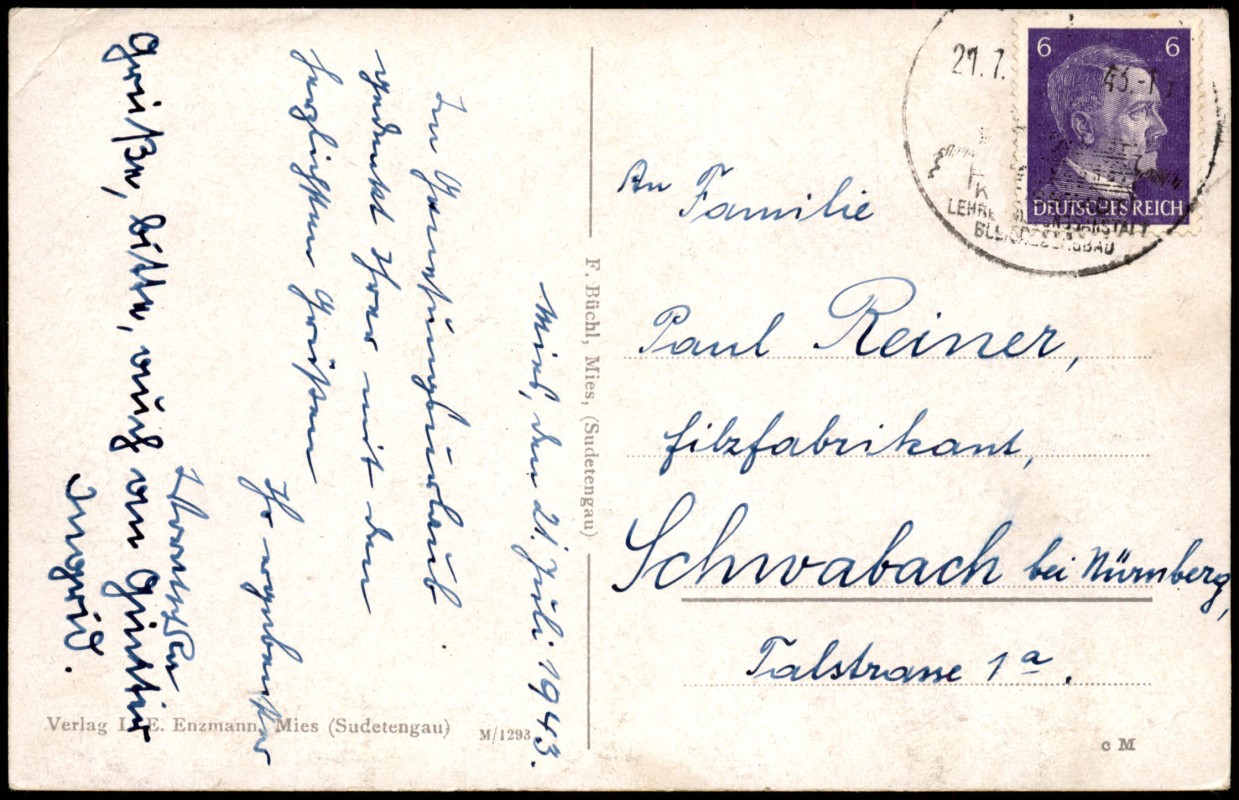 Mies, den 21. Juli 1943.
Im Genesungsurlaub
gedenkt Ihrer mit den
herzlichsten Grüßen
Ihr ergebenster
Grüße, bitte, auch an
F. Büchl, Mies, (Sudetengau)
Verlag L. E. Enzmann, Mies (Sudetengau)
M/1293
21. 7. 43.
6 6
DEUTSCHES REICH
An Familie
Paul Reiner,
Filzfabrikant,
Schwabach bei Nürnberg,
Talstrasse 1a.
c M